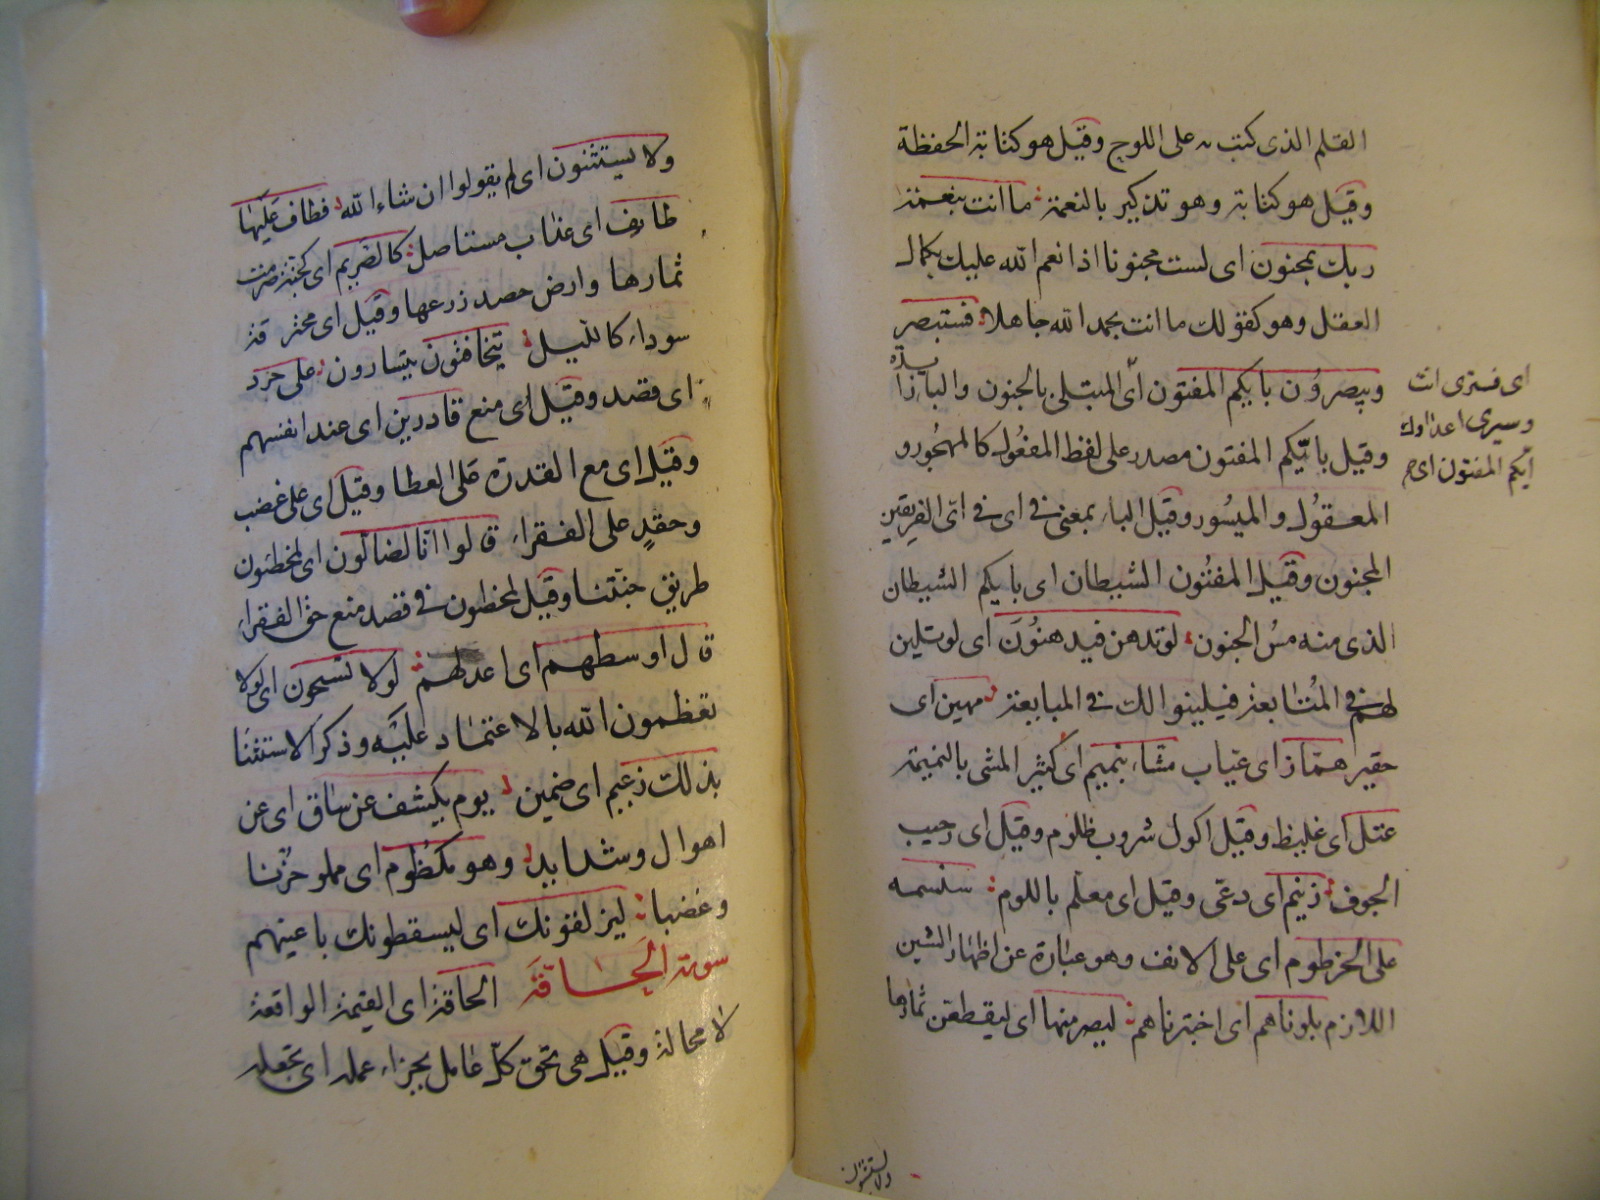 القلم الذى كتب به على اللوح وقيل هو كتابة الحفظة
وقيل هو كتابة وهو تذكير بالنعمة ما انت بنعمة
ربك بمجنون اى لست مجنونا اذا نعم الله عليك بكمال
العقل وهو كقولك ما انت بحمد الله جاهلا فستبصر
ويبصرون بايكم المفتون اى المبتلى بالجنون والباء زائدة
وقيل بايكم المفتون مصدر على لفظ المفعول كالمهجور و
المعقول والميسور وقيل الباء بمعنى فى اى فى اى الفريقين
المجنون وقيل المفتون الشيطان اى بايكم الشيطان
الذى منه مس الجنون لو تدهن فيدهنون اى لو تلين
لهم فى المتابعة فيلينوا لك فى المبايعة مهين اى
حقير هماز اى عياب مشاء بنميم اى كثير المشى بالنميمة
عتل اى غليظ وقيل اكول شروب ظلوم وقيل اى رحيب
الجوف زنيم اى دعى وقيل اى معلم باللوم سنسمه
على الخرطوم اى على الانف وهو عبارة عن اظهار الشين
اللازم بلوناهم اى اختبرناهم ليصرمنها اى ليقطعن ثمارها
اى فسترى انت
وسيرى اعداؤك
ايكم المفتون اى
ولا يستثنون
ولا يستثنون اى لم يقولوا ان شاء الله فطاف عليها
طائف اى عذاب مستاصل كالصريم اى كجنة صرمت
ثمارها وارض حصد زرعها وقيل اى محترقة
سوداء كالليل يتخافتون يتسارون على حرد
اى قصد وقيل اى منع قادرين اى عند انفسهم
وقيل اى مع القدرة على العطا وقيل اى على غضب
وحقد على الفقراء قالوا انا لضالون اى لمخطئون
طريق جنتنا وقيل لمخطون فى قصد منع حق الفقراء
قال اوسطهم اى اعدلهم لولا تسبحون اى لولا
تعظمون الله بالاعتماد عليه وذكر الاستثنا
بذلك زعيم اى ضمين يوم يكشف عن ساق اى عن
اهوال وشدايد وهو مكظوم اى مملو حزنا
وغضبا ليزلقونك اى ليسقطونك باعينهم
سورة الحاقة الحاقة اى القيمة الواقعة
لا محالة وقيل هى تحق كل عامل بجزاء عمله اى تجعله